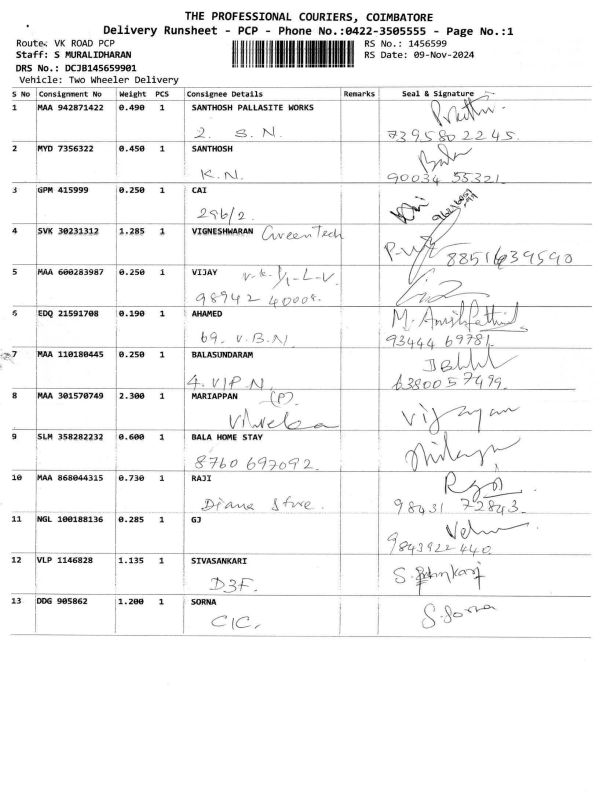 THE PROFESSIONAL COURIERS, COIMBATORE
Delivery Runsheet - PCP - Phone No.:0422-3505555 - Page No.:1
Route: VK ROAD PCP RS No.: 1456599
Staff: S MURALIDHARAN RS Date: 09-Nov-2024
DRS No.: DCJB145659901
Vehicle: Two Wheeler Delivery
S No Consignment No Weight PCS Consignee Details Remarks Seal & Signature
1 MAA 942871422 0.490 1 SANTHOSH PALLASITE WORKS
2. S.N. 7395802245.
2 MYD 7356322 0.450 1 SANTHOSH
K.N. 90034 55321.
3 GPM 415999 0.250 1 CAI
296/2.
4 SVK 30231312 1.285 1 VIGNESHWARAN GreenTech
5 MAA 600283987 0.250 1 VIJAY
98942 40008.
6 EDQ 21591708 0.190 1 AHAMED
69. V.B.N. 93444 69781.
7 MAA 110180445 0.250 1 BALASUNDARAM
4. V.P.N. 6380057499.
8 MAA 301570749 2.300 1 MARIAPPAN (P). Vijayan
9 SLM 358282232 0.600 1 BALA HOME STAY
8760 697092.
10 MAA 868044315 0.730 1 RAJI
Diana Store. 98431 72843.
11 NGL 100188136 0.285 1 GJ
9843922440.
12 VLP 1146828 1.135 1 SIVASANKARI
D3F.
13 DDG 905862 1.200 1 SORNA S.Sorna
CIC.